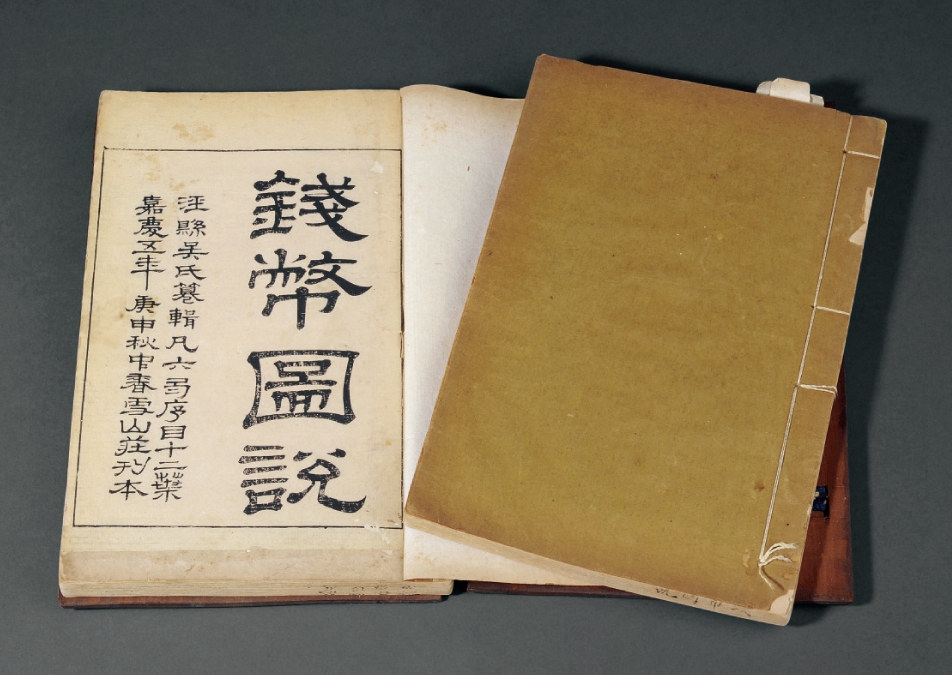 錢幣圖說
涇縣吳氏纂輯凡六弓序目十二葉
嘉慶五年庚申秋中香雪山莊刊本